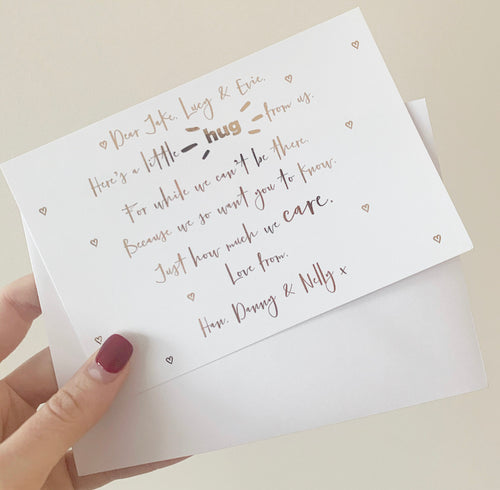 Dear Jake, Lucy & Evie,
Here's a little hug from us,
For while we can't be there,
Because we so want you to know,
Just how much we care.
Love from,
Han, Danny & Nelly x